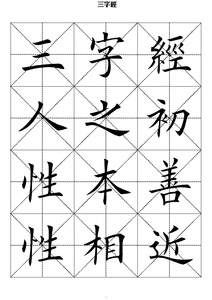 三字經
三字經
人之初
性本善
性相近